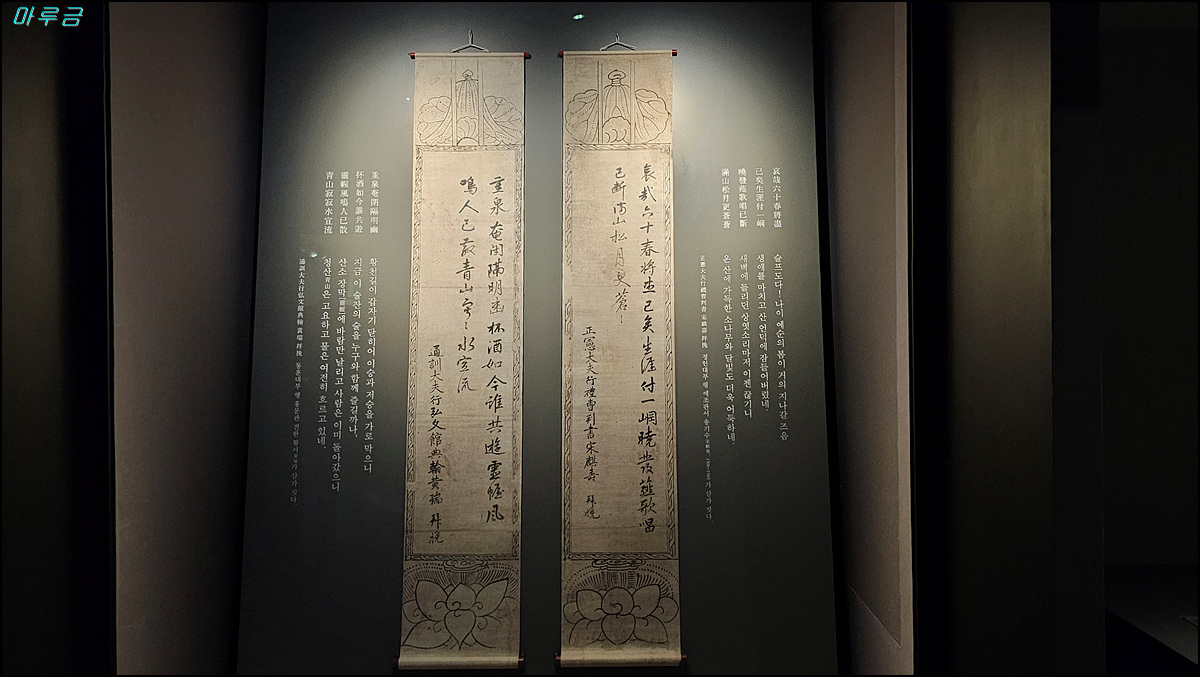 마루금
哀哉六十春將盡
已矣生涯付一峒
曉發薤歌唱已斷
滿山松月更蒼蒼
슬프도다! 나이 예순의 봄이 거의 지나갈 즈음
생애를 마치고 산 언덕에 잠들어버렸네.
새벽에 들리던 상엿소리마저 이젠 끊기니
온 산에 가득한 소나무와 달빛도 더욱 어둑하네.
正憲大夫行禮曹判書 宋麒壽 拜挽 정헌대부 행 예조판서 송기수가 삼가 짓다.
哀哉六十春将盡已矣生涯付一峒曉發薤歌唱
已斷滿山松月更蒼〻
正憲大夫行禮曹判書宋麒壽 拜挽
重泉奄閉隔明幽杯酒如今誰共遊靈幄風
鳴人已散青山寂〻水空流
通訓大夫行弘文館典翰黃瑞 拜挽
重泉奄閉隔明幽
杯酒如今誰共遊
靈幄風鳴人已散
青山寂寂水空流
황천길이 갑자기 닫히어 이승과 저승을 가로 막으니
지금 이 술잔의 술을 누구와 함께 즐길까나,
산소 장막靈幄에 바람만 날리고 사람은 이미 돌아갔으니
청산靑山은 고요하고 물은 여전히 흐르고 있네.
通訓大夫行弘文館典翰 黃瑞 拜挽 통훈대부 행 홍문관 전한 황서가 삼가 짓다.